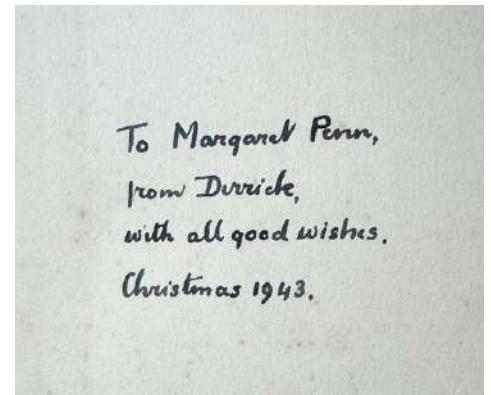 To Margaret Penn,
from Derrick,
with all good wishes.
Christmas 1943.